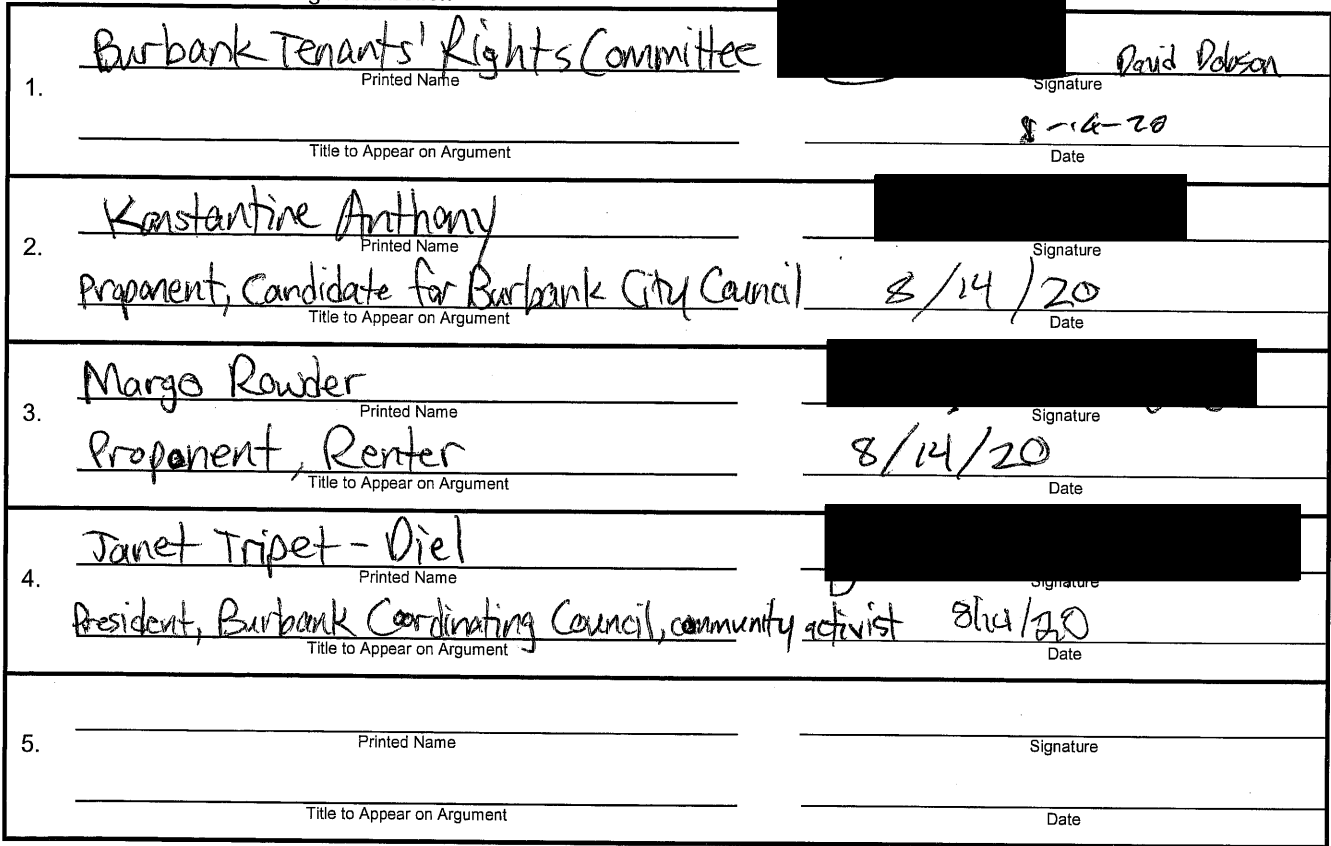 Burbank Tenants' Rights Committee David Dobson
Printed Name Signature
1.
8-14-20
Title to Appear on Argument Date
Konstantine Anthony
Printed Name Signature
2.
Proponent, Candidate for Burbank City Council 8/14/20
Title to Appear on Argument Date
Margo Rowder
Printed Name Signature
3.
Proponent, Renter 8/14/20
Title to Appear on Argument Date
Janet Tripet-Diel
Printed Name Signature
4.
President, Burbank Coordinating Council, community activist 8/14/20
Title to Appear on Argument Date
Printed Name Signature
5.
Title to Appear on Argument Date